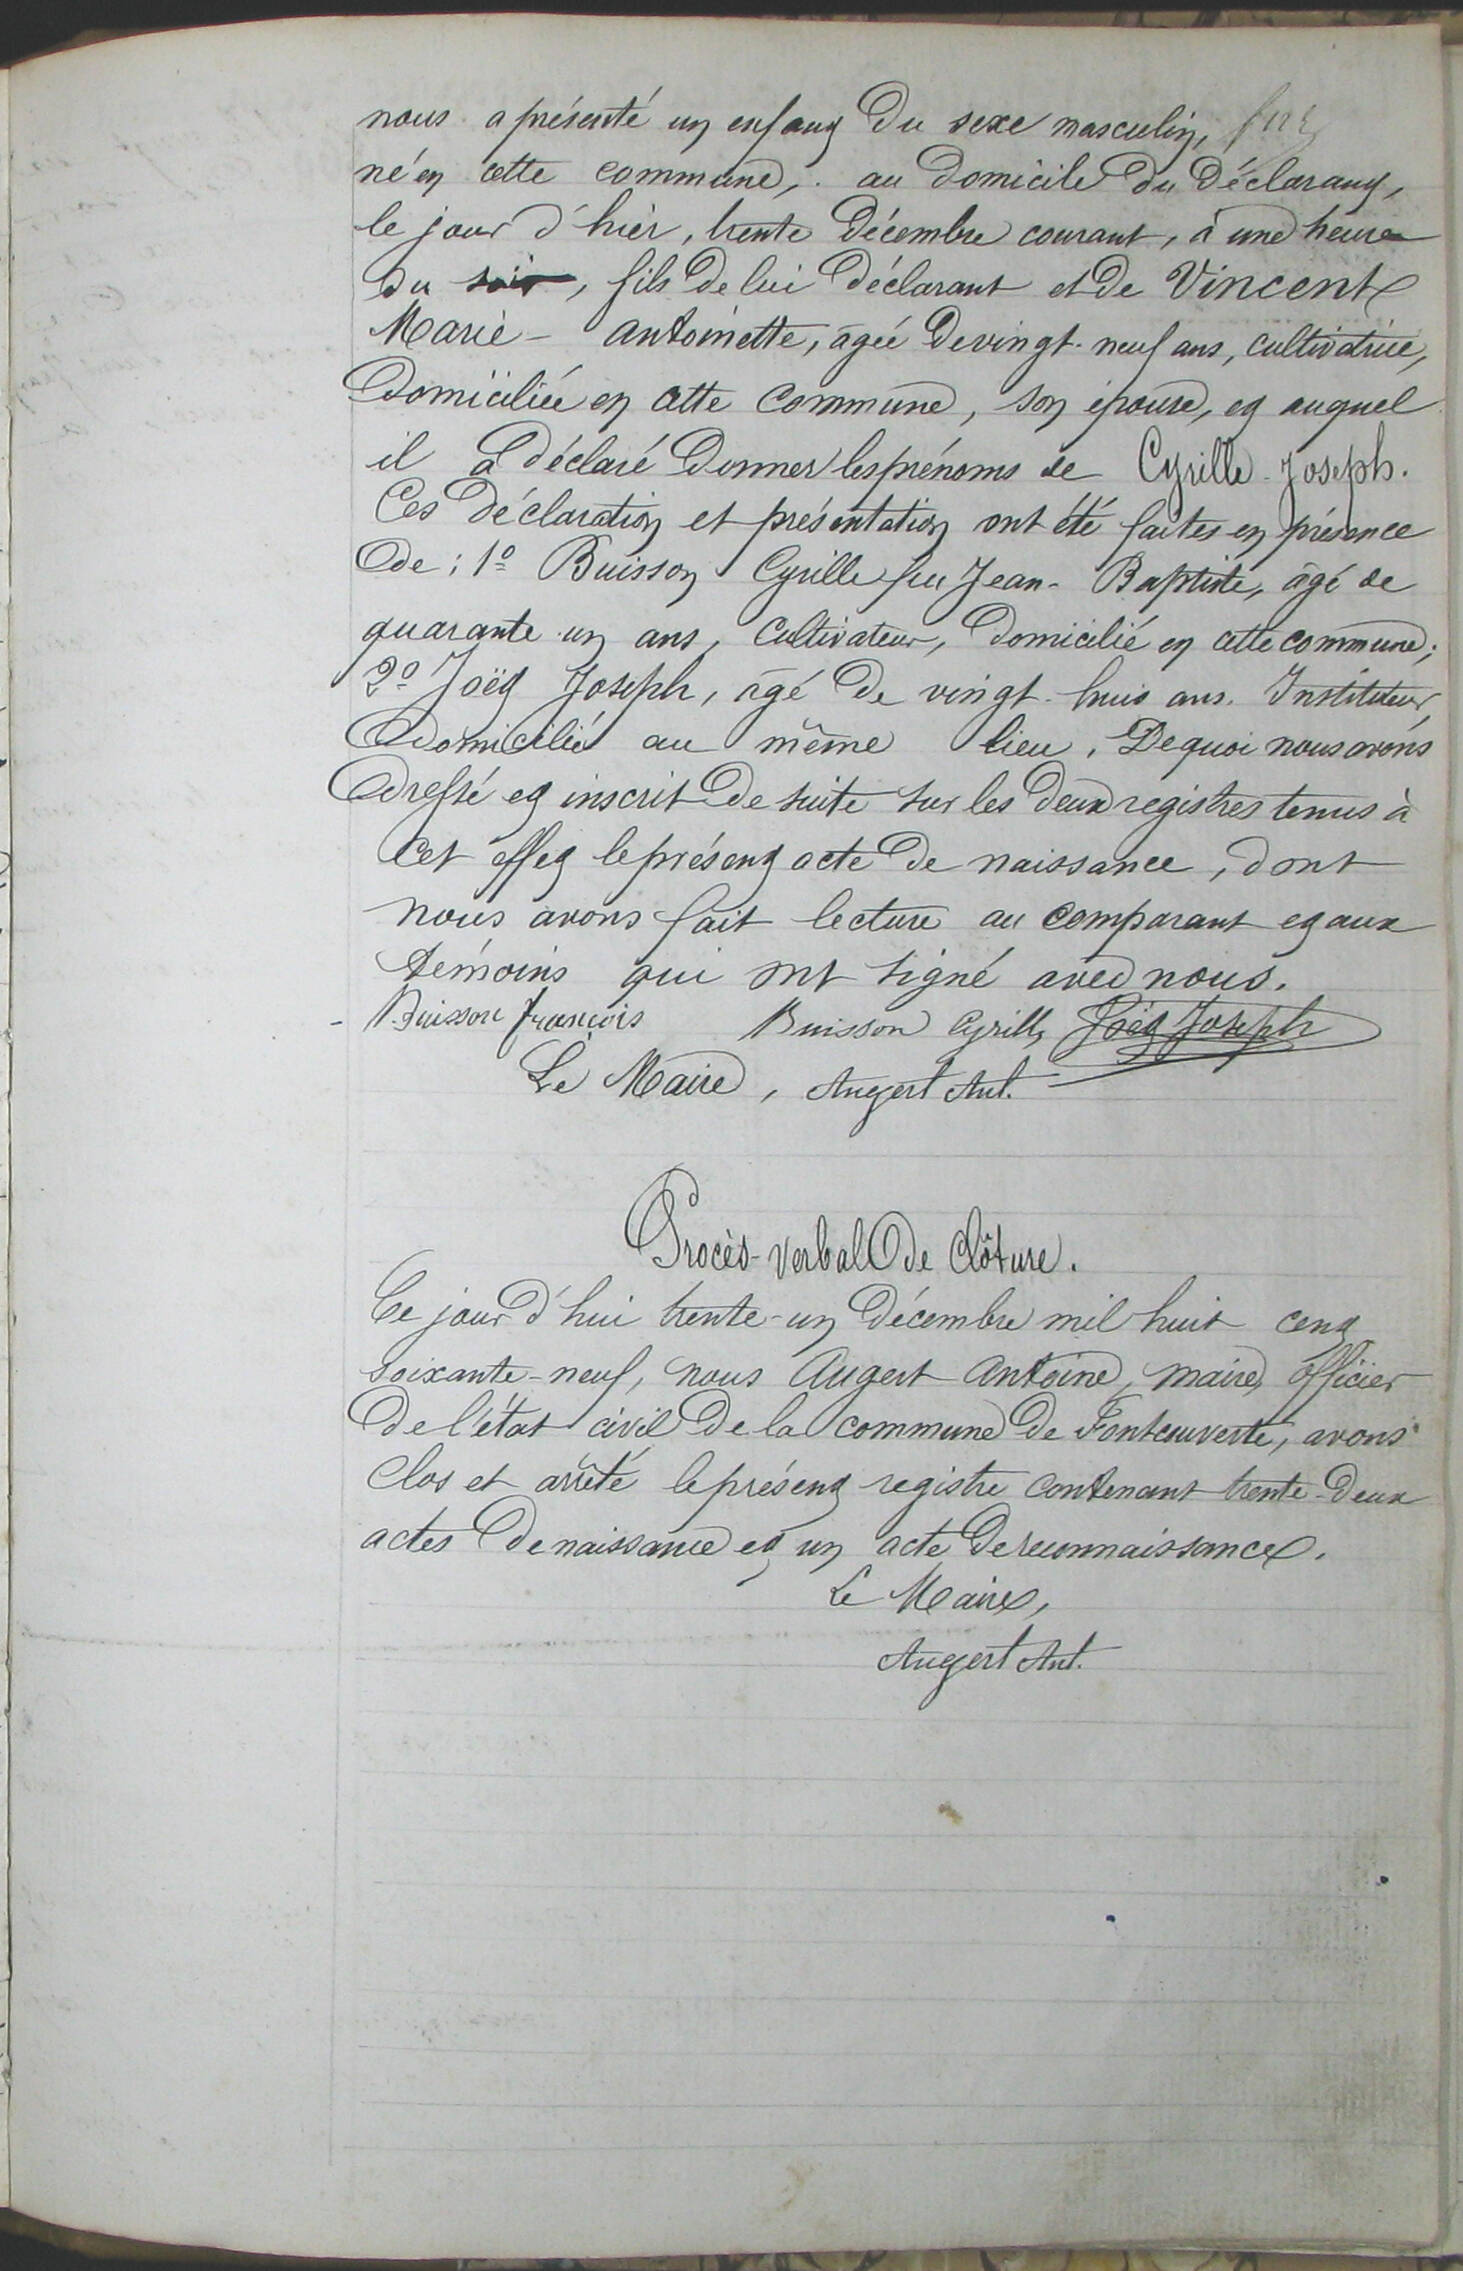 nous a présenté un enfant du sexe masculin,
né en cette commune, au domicile du déclarant,
le jour d'hier, trente décembre courant, à une heure
du soir, fils de lui déclarant et de Vincent
Marie-Antoinette, âgée de vingt-neuf ans, cultivatrice,
domiciliée en cette commune, son épouse, et auquel
il a déclaré donner les prénoms de Cyrille-Joseph.
Ces déclaration et présentation ont été faites en présence
de : 1º Buisson Cyrille feu Jean-Baptiste, âgé de
quarante un ans, cultivateur, domicilié en cette commune;
2º Joët Joseph, âgé de vingt-huit ans, Instituteur,
domicilié au même lieu. De quoi nous avons
dressé et inscrit de suite sur les deux registres tenus à
cet effet le présent acte de naissance, dont
nous avons fait lecture au comparant et aux
témoins qui ont signé avec nous.
Buisson françois Buisson Cyrille Joët Joseph
Le Maire, Augert Ant.
Procès-verbal de clôture.
Ce jour d'hui trente-un décembre mil huit cent
soixante-neuf, nous Augert Antoine, maire, officier
de l'état civil de la commune de Fontcouverte, avons
clos et arrêté le présent registre contenant trente-deux
actes de naissance et un acte de reconnaissance.
Le Maire,
Augert Ant.